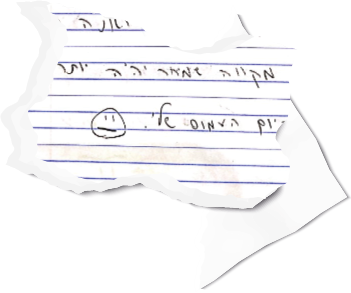 ישנה
מקווה שמחר יהיה יותר
יום העמוס שלי.